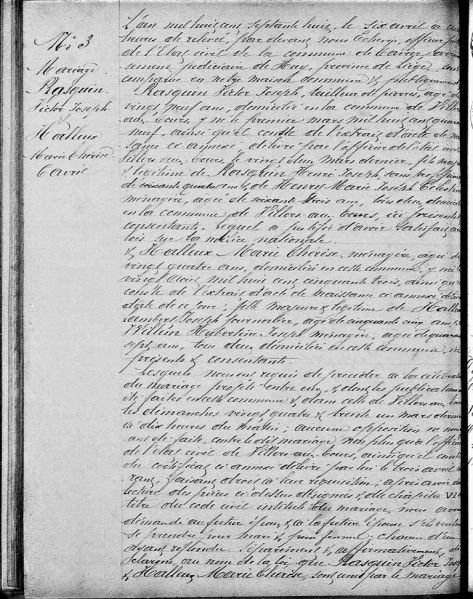 N° 3
Mariage
Rasquin
Victor Joseph
&
Halleux
Marie Thérèse
6 avril
L'an mil huit cent septante huit, le six avril a
heure de relevée, par devant nous officier
de l'Etat civil de la commune de
judiciaire de Huy, province de Liège
en notre maison commune & publiquement
Rasquin Victor Joseph, tailleur de pierres, agé de
vingt neuf ans, domicilié en la commune de Villers
aux Tours, y né le premier mars mil huit cent quarante
neuf, ainsi qu'il conste de l'extrait d'acte de nais
sance ci annexé, délivré par l'officier de l'état civil
Villers aux Tours, le vingt deux mars dernier, fils majeur
& légitime de Rasquin Henri Joseph sans profession
de soixante quatre ans & de Henry Marie Joseph
ménagère, agée de soixante trois ans, tous deux domiciliés
en la commune de Villers aux Tours, ici présents
consentants, lequel a justifié d'avoir satisfait aux
lois sur la milice nationale
& Halleux Marie Thérèse, ménagère, agée de
vingt quatre ans, domiciliée en cette commune, y née
vingt mil huit cent cinquante trois, ainsi qu'il
conste de l'extrait d'acte de naissance ci annexé délivré
date de ce jour; fille majeure & légitime de Halleux
Lambert Joseph, agé de cinquante cinq ans &
Joseph ménagère, agée de quarante
sept ans, tous deux domiciliés en cette commune, ici
présents & consentants.
Lesquels nous ont requis de procéder à la célébration
du mariage projeté entre eux, & dont les publications
été faites en cette commune & dans celle de Villers aux Tours
les dimanches vingt quatre & trente un mars dernier
à dix heures du matin; aucune opposition ne nous
ans de faite contre ledit mariage, non plus qu'à l'officier
de l'état civil de Villers aux Tours, ainsi qu'il conste
du certificat ci annexé délivré par lui le trois avril
faisant droit à leur réquisition; après avoir donné
lecture des pièces ci dessus désignées & du chapitre VI
titre du code civil intitulé du mariage, nous avons
demandé au futur époux & à la future épouse s'ils veulent
se prendre pour mari & pour femme; chacun d'eux
ayant répondu séparément & affirmativement,
déclarons au nom de la loi que Rasquin Victor Joseph
& Halleux Marie Thérèse, sont unis par le mariage